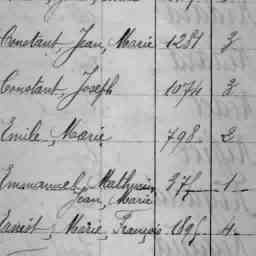 Constant, Jean, Marie 1281 3
Constant, Joseph 1074 3
Emile, Marie 798 2
Emmanuel, Mathurin, 375 1
Jean, Marie
Marie, François 1895 4